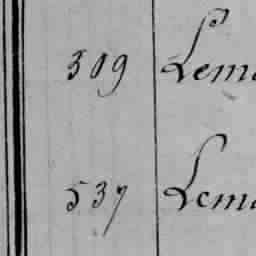 309 Lema
537 Lema